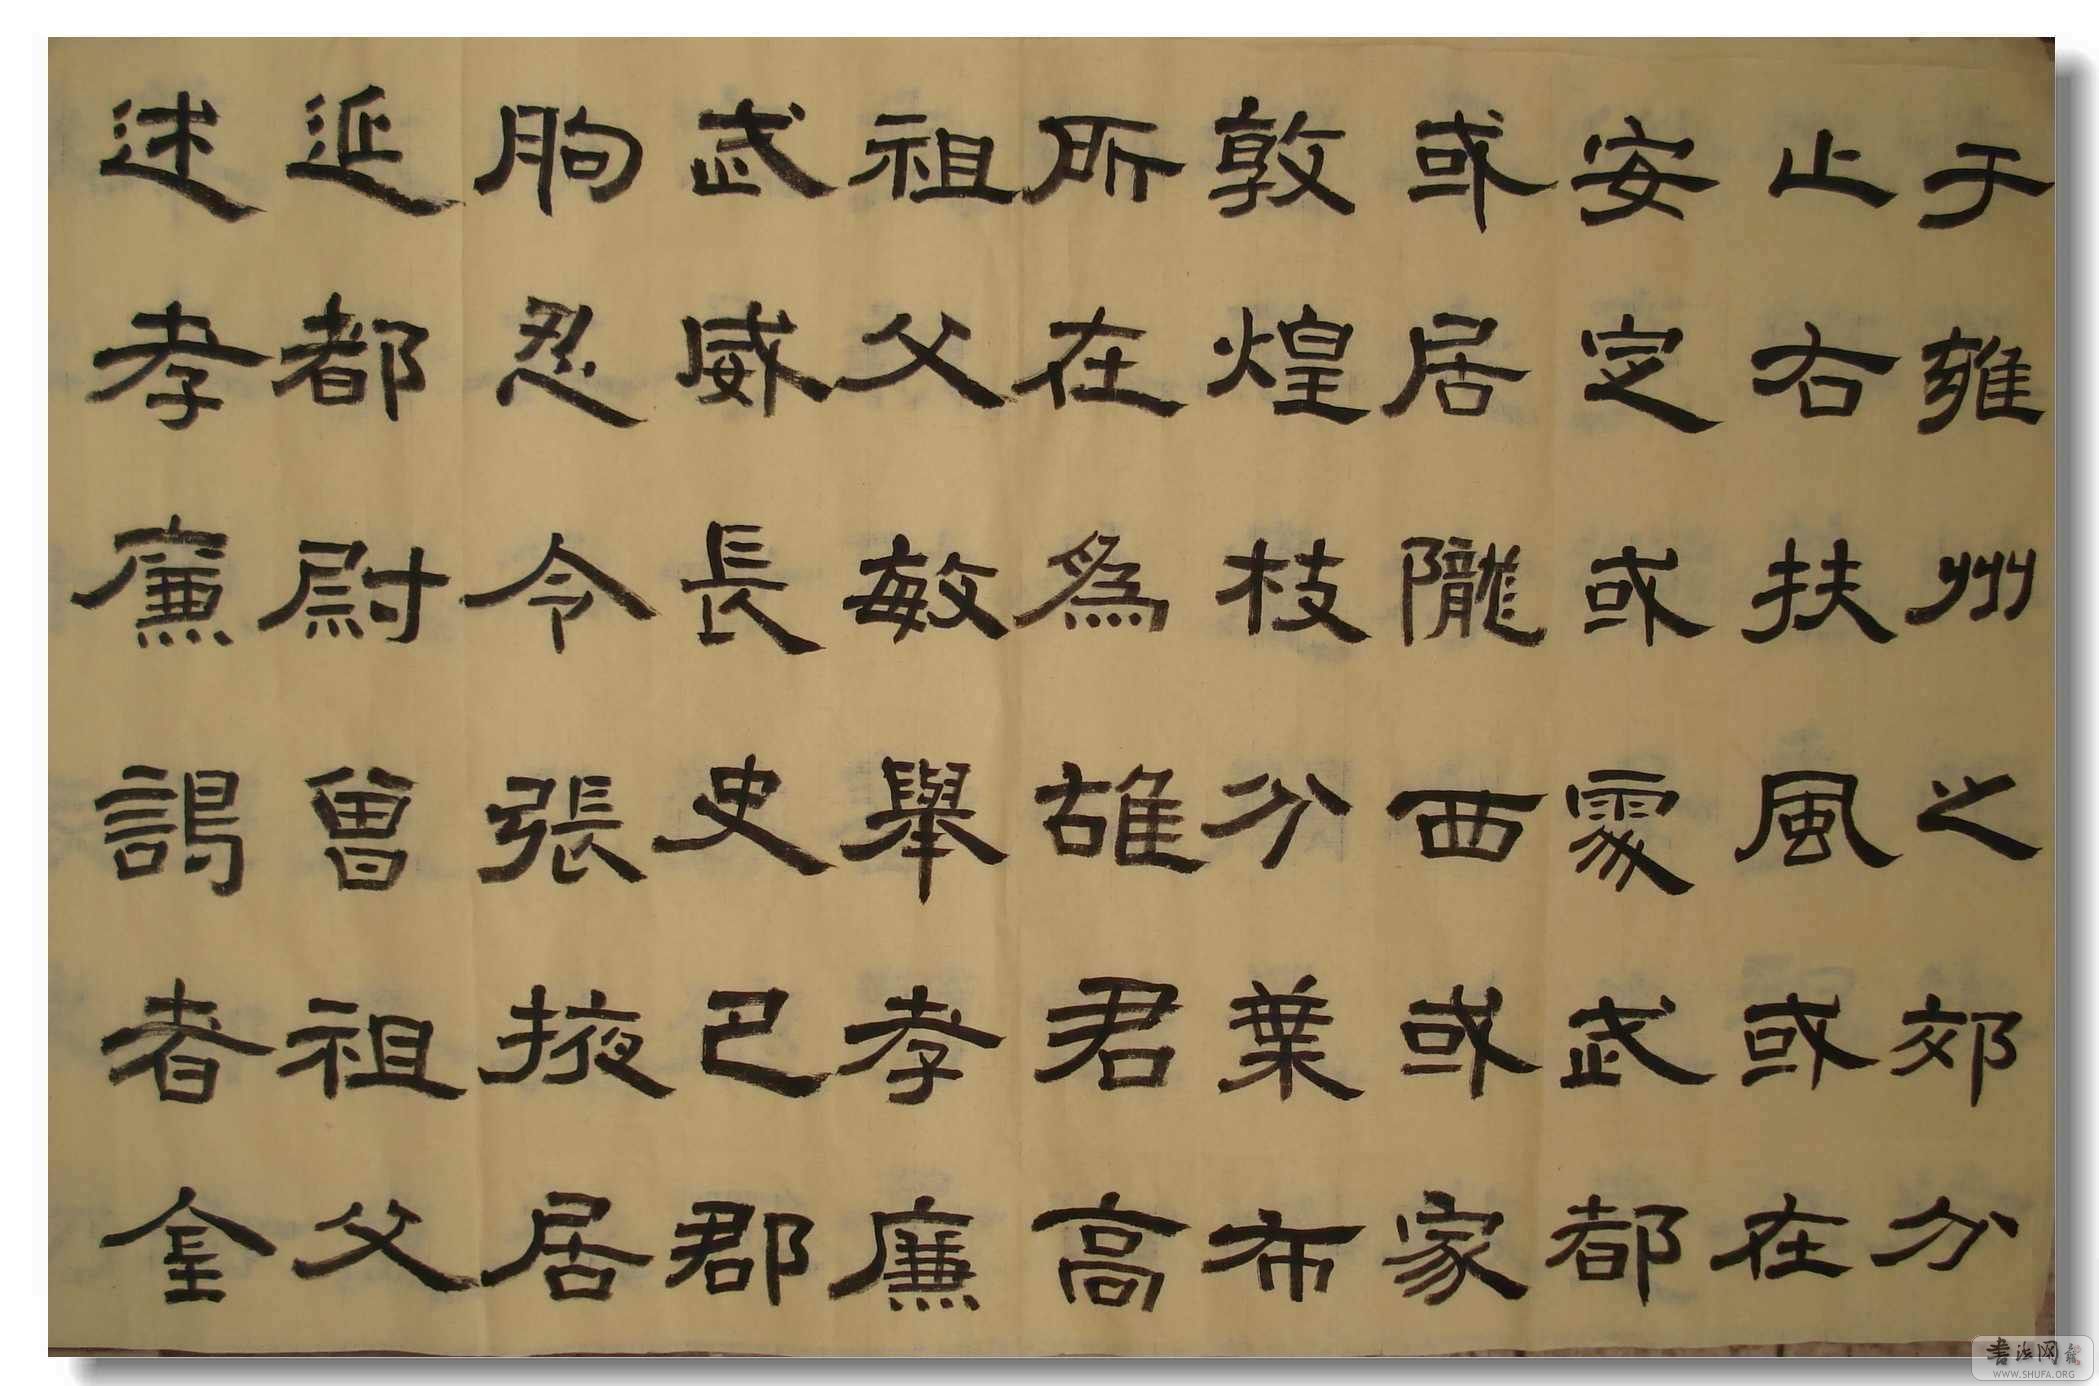 于雍州之郊分
止右扶風或在
安定或處武都
或居隴西或家
敦煌枝分葉布
所在為雄君高
祖父敏舉孝廉
武威長史巴郡
朐忍令張掖居
延都尉曾祖父
述孝廉謁者金
書法网
WWW.SHUFA.ORG